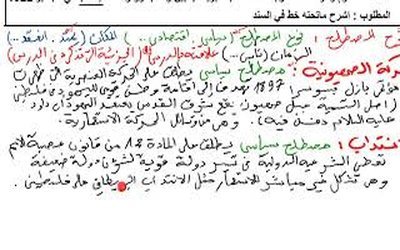 المطلوب : اشرح ماتحته خط في السند
شرح المصطلح : نوع المصطلح ( سياسي , اقتصادي .. ) المكان ( يمتد . الفقد... )
الزمان ( تأسس ... ) علاقته بالدرس ( الجزئية التي ذكر في الدرس )
حركة الصهيونية : مصطلح سياسي يطلق على الحركة العنصرية التي ظهرت
مؤتمر بازل بسويسرا 1897 تهدف إلى إقامة وطن قومي لليهود في فلسطين
( أصل التسمية جبل صهيون يقع شرق القدس يعتقد اليهود أن داود
عليه السلام دفن فيه ) . وهي من وسائل الحركة الاستعمارية .
الانتداب : مصطلح سياسي يطلق على المادة 22 من قانون عصبة الأمم
تعطي الشرعية الدولية في تسيير دولة قوية لشؤون دولة ضعيفة
وهي شكل غير مباشر للاستعمار مثل الانتداب البريطاني على فلسطين .